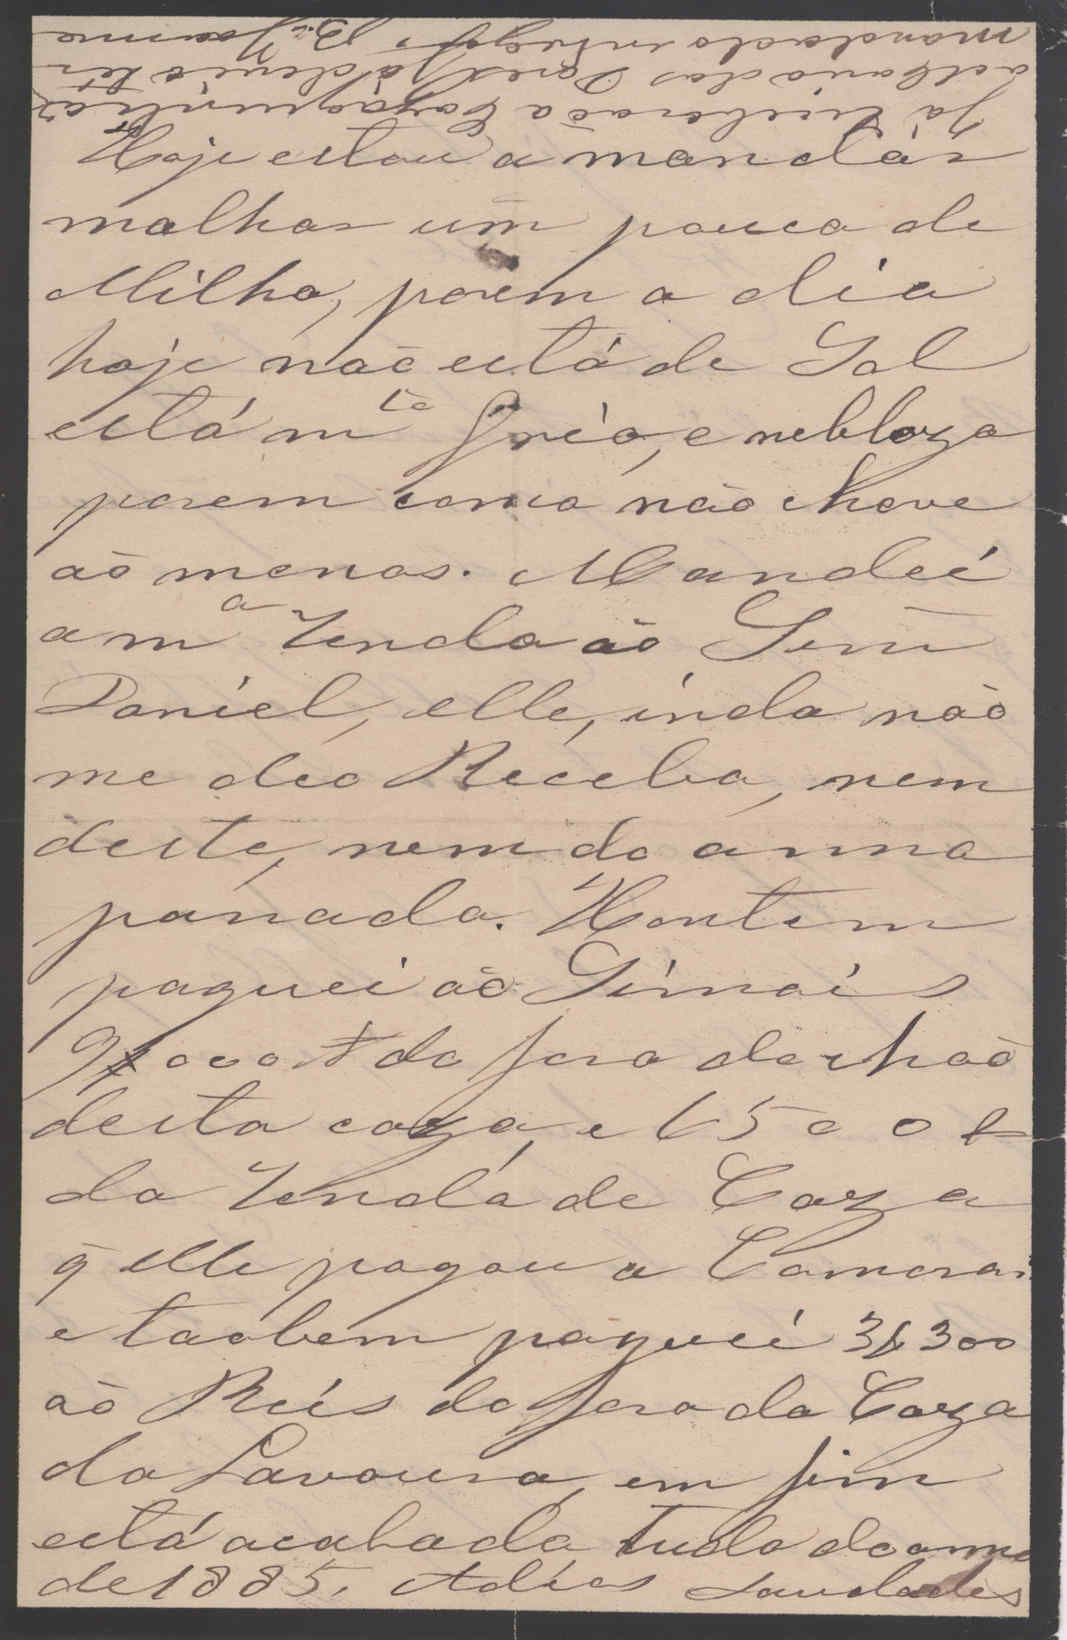 Hoje estou a mandár
malhar um pouco de
Milho, porem o dia
hoje não está de Sol
está m.to frio, e nebloza
porem como não chove
aò menos. Mandei
a m.a Renda aò Senr
Daniel, elle, inda não
me deo Recebo, nem
deste, nem do anno
panado. Hontem
paguei aò Simais
9$000 do foro do chaò
desta caza, e 6500
da Renda de Caza
q̃ elle pagou a Camera
e taobem paguei 3$300
aò Reis do foro da Caza
da Lavoura, em fim
está acabado tudo do anno
de 1885. Adios Saudades
Já receberaõ a
dos já deve ter
mandado entregar